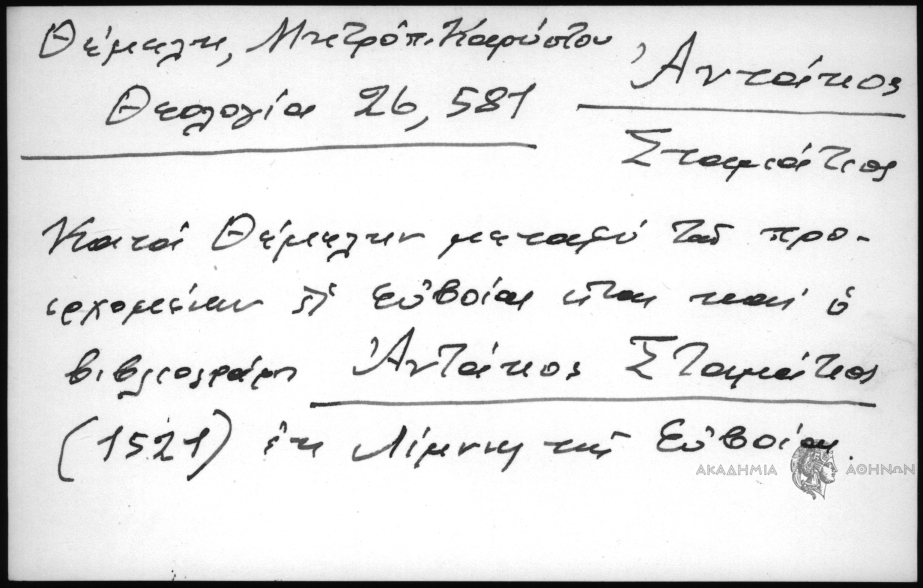 Θέμελη, Μητροπ. Καρύστου
Θεολογία 26, 581
Ἀντάκος
Σταμάτιος
Κατά Θέμελην μεταξύ τῶν προ-
ερχομένων ἐξ Εὐβοίας ἦτο καί ὁ
βιβλιογράφος Ἀντάκος Σταμάτιος
(1521) ἐκ Λίμνης τῆς Εὐβοίας.
ΑΚΑΔΗΜΙΑ ΑΘΗΝΩΝ